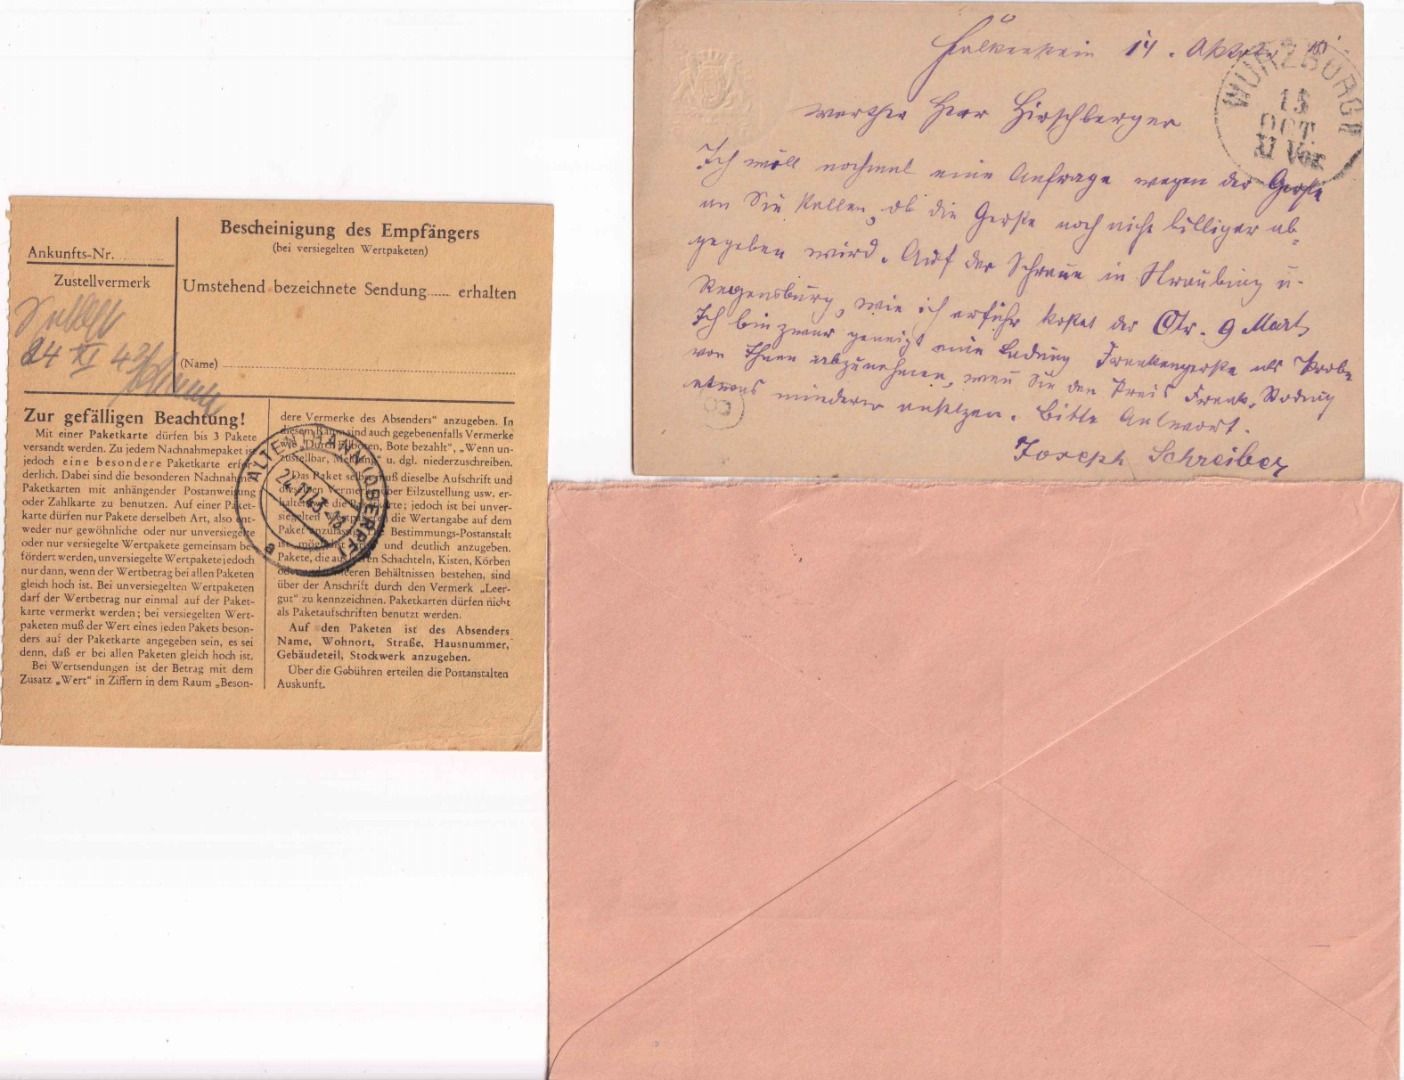 Ankunfts-Nr.
Zustellvermerk
24 XI 43
Bescheinigung des Empfängers
(bei versiegelten Wertpaketen)
Umstehend bezeichnete Sendung...... erhalten
(Name)
Zur gefälligen Beachtung!
Mit einer Paketkarte dürfen bis 3 Pakete
versandt werden. Zu jedem Nachnahmepaket ist
jedoch eine besondere Paketkarte erfor
derlich. Dabei sind die besonderen Nachnahme
Paketkarten mit anhängender Postanweisung
oder Zahlkarte zu benutzen. Auf einer Paket-
karte dürfen nur Pakete derselben Art, also ent
weder nur gewöhnliche oder nur unversiegelte
oder nur versiegelte Wertpakete gemeinsam be
fördert werden, unversiegelte Wertpakete jedoch
nur dann, wenn der Wertbetrag bei allen Paketen
gleich hoch ist. Bei unversiegelten Wertpaketen
darf der Wertbetrag nur einmal auf der Paket-
karte vermerkt werden; bei versiegelten Wert-
paketen muß der Wert eines jeden Pakets beson-
ders auf der Paketkarte angegeben sein, es sei
denn, daß er bei allen Paketen gleich hoch ist.
Bei Wertsendungen ist der Betrag mit dem
Zusatz „Wert" in Ziffern in dem Raum „Beson-
dere Vermerke des Absenders" anzugeben. In
diesem Raum sind auch gegebenenfalls Vermerke
wie „Durch Eilboten, Bote bezahlt", „Wenn un-
zustellbar, Meldung" u. dgl. niederzuschreiben.
Das Paket selbst muß dieselbe Aufschrift und
dieselben Vermerke über Eilzustellung usw. er-
halten wie die Paketkarte; jedoch ist bei unver-
siegelten die Wertangabe auf dem
Paket unzulässig. Bestimmungs-Postanstalt
ist möglichst und deutlich anzugeben.
Pakete, die aus leeren Schachteln, Kisten, Körben
oder anderen leeren Behältnissen bestehen, sind
über der Anschrift durch den Vermerk „Leer-
gut" zu kennzeichnen. Paketkarten dürfen nicht
als Paketaufschriften benutzt werden.
Auf den Paketen ist des Absenders
Name, Wohnort, Straße, Hausnummer,
Gebäudeteil, Stockwerk anzugehen.
Über die Gebühren erteilen die Postanstalten
Auskunft.
ALTENTHANN (OBERPF)
24.11.43-12
a
Falkenstein 14. Oktob
WÜRZBURG I
15
OCT.
XI Vor.
werther Herr Hirschberger
Ich will nochmal eine Anfrage wegen der Gerste
an Sie stellen, ob die Gerste noch nicht billiger ab-
gegeben wird. Auf der Schranne in Straubing u.
Regensburg, wie ich erfuhr kostet der Ctr. 9 Mark,
Ich bin zwar geneigt eine Ladung Frankengerste als Probe
von Ihnen abzunehmen, wenn Sie den Preis Frank. Roding
etwas minder ansetzen. Bitte Antwort.
Joseph Schreiber